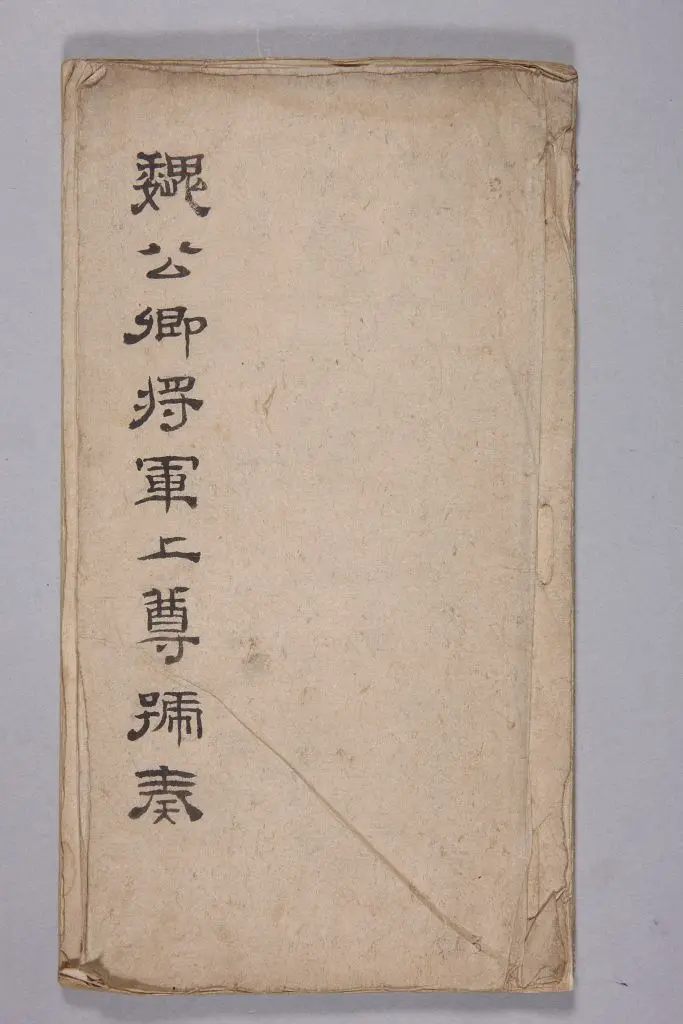 魏公卿将軍上尊號奏